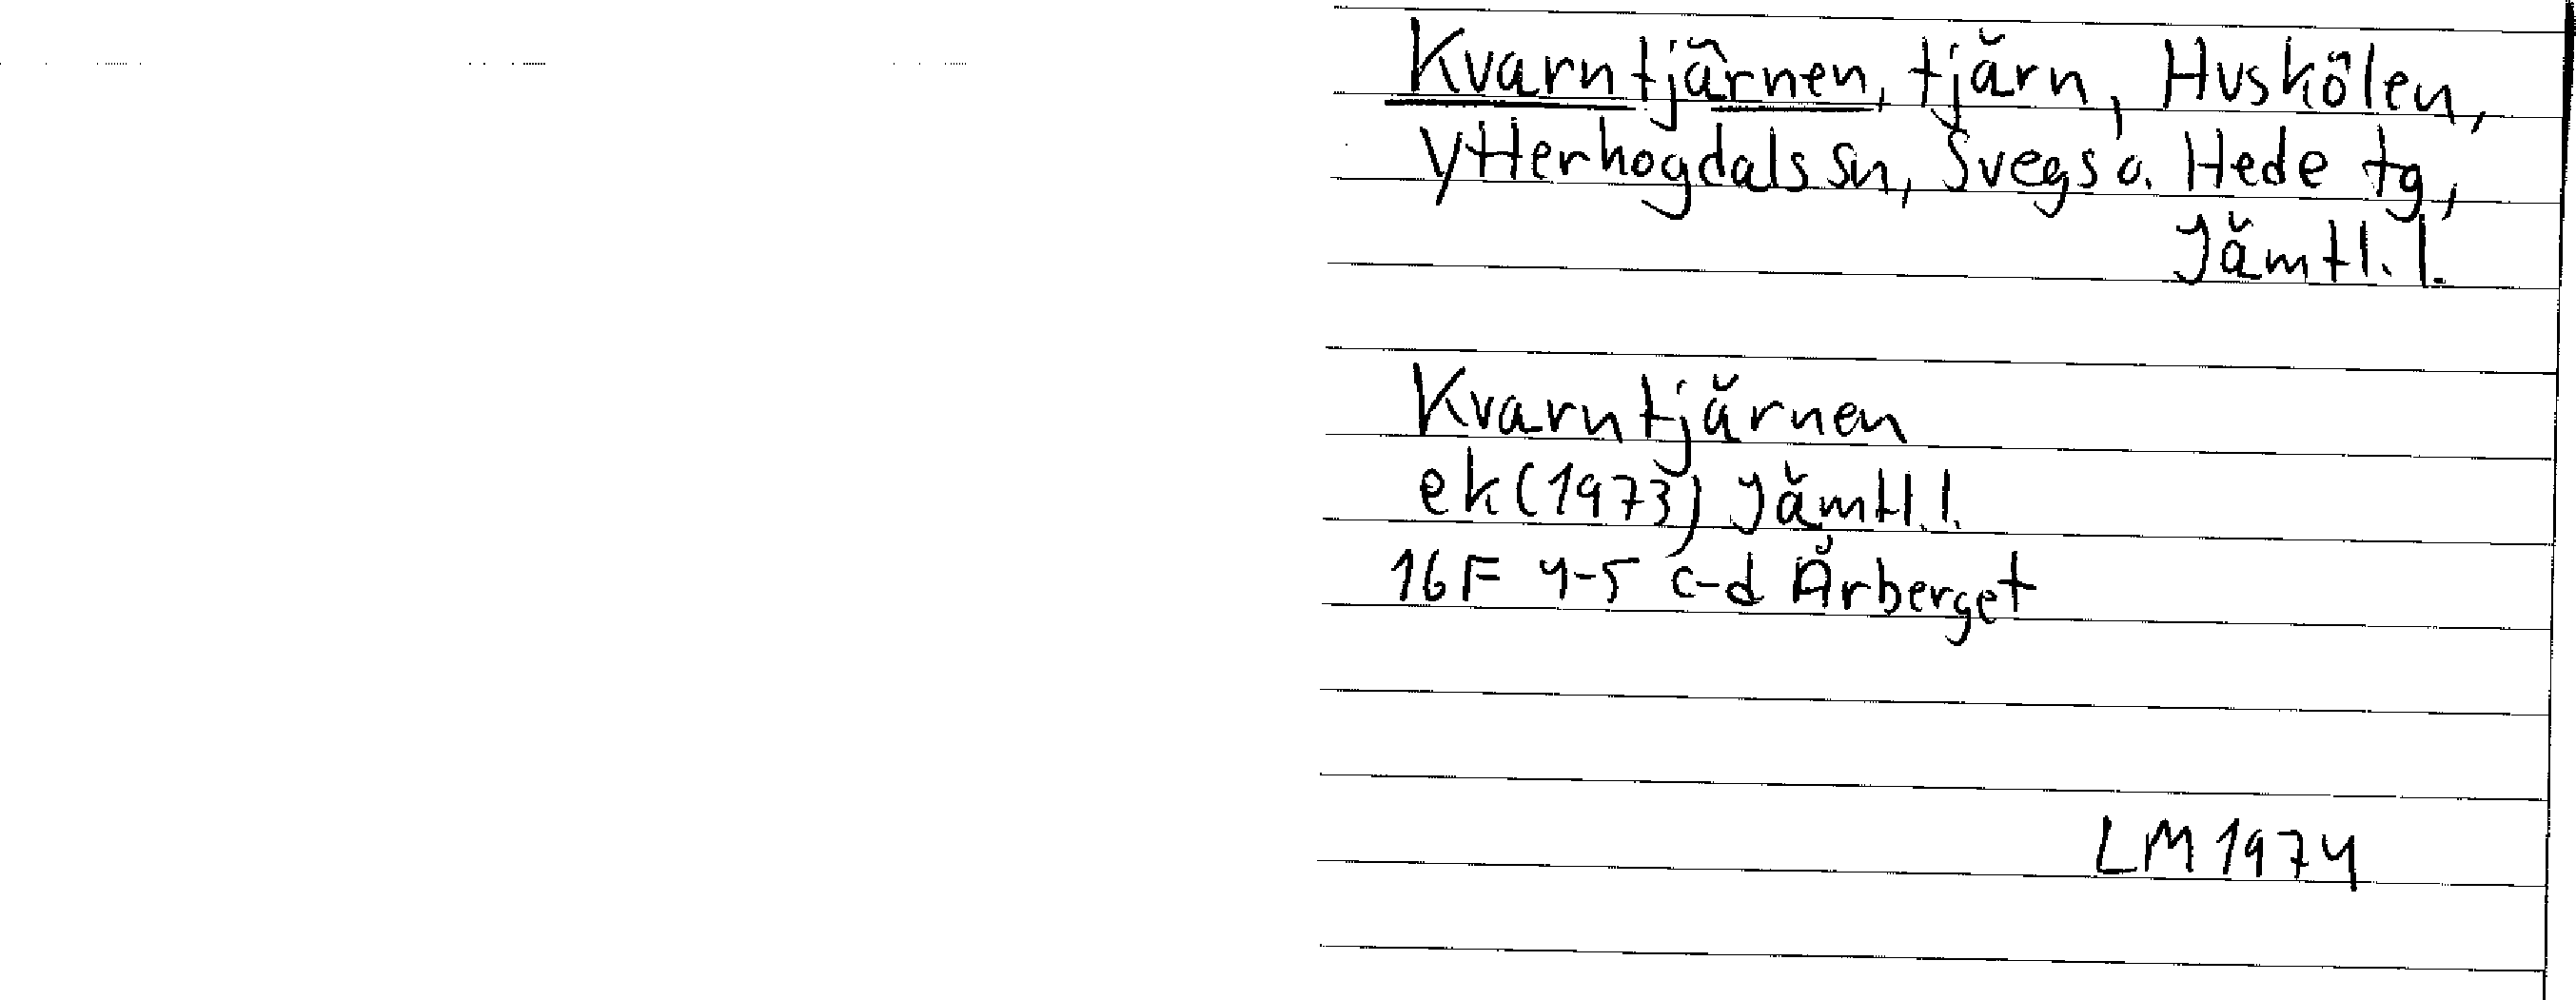 Kvarntjärnen, tjärn, Huskölen,
Ytterhogdals sn, Svegs o. Hede tg,
Jämtl. l.
Kvarntjärnen
ek (1973) Jämtl. l.
16F 4-5 c-d Ärberget
LM 1974